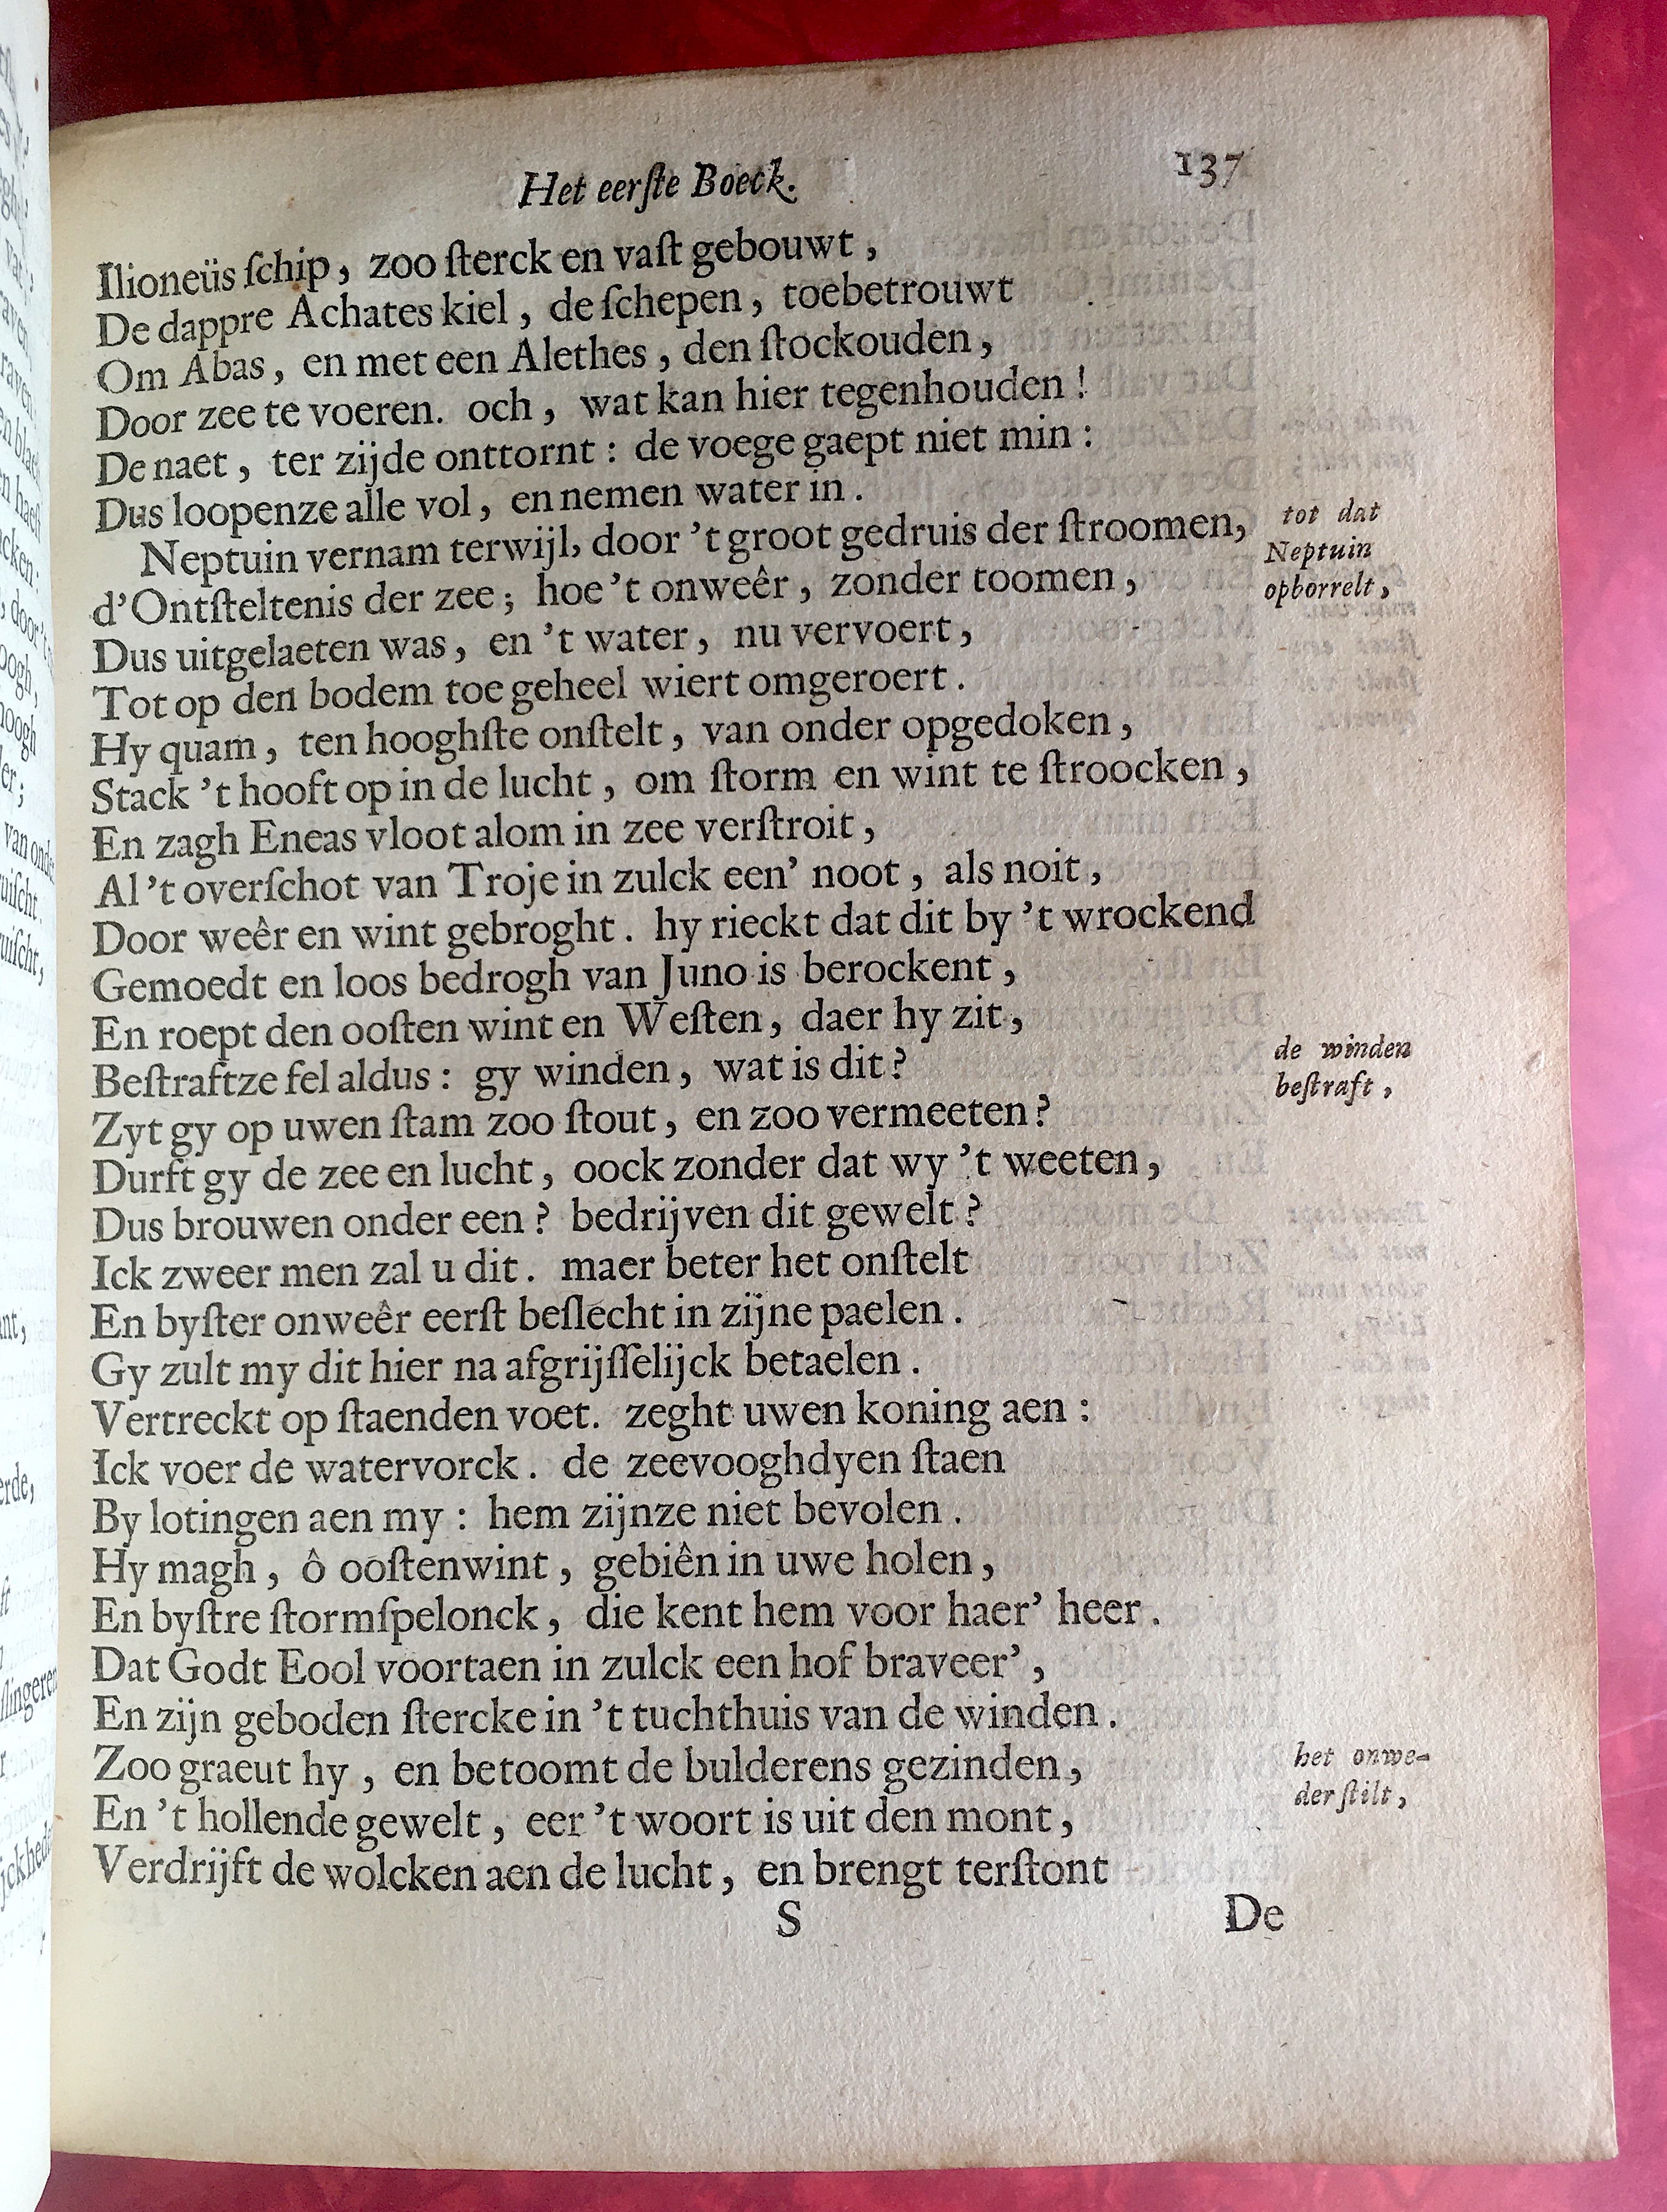 Het eerſte Boeck. 137
Ilioneüs ſchip, zoo ſterck en vaſt gebouwt,
De dappre Achates kiel, de ſchepen, toebetrouwt
Om Abas, en met een Alethes, den ſtockouden,
Door zee te voeren. och, wat kan hier tegenhouden!
De naet, ter zijde onttornt: de voege gaept niet min:
Dus loopenze alle vol, en nemen water in.
Neptuin vernam terwijl, door 't groot gedruis der ſtroomen,
d'Ontſteltenis der zee; hoe 't onweêr, zonder toomen,
Dus uitgelaeten was, en 't water, nu vervoert,
Tot op den bodem toe geheel wiert omgeroert.
Hy quam, ten hooghſte onſtelt, van onder opgedoken,
Stack 't hooft op in de lucht, om ſtorm en wint te ſtroocken,
En zagh Eneas vloot alom in zee verſtroit,
Al 't overſchot van Troje in zulck een' noot, als noit,
Door weêr en wint gebroght. hy rieckt dat dit by 't wrockend
Gemoedt en loos bedrogh van Juno is berockent,
En roept den ooſten wint en Weſten, daer hy zit,
Beſtraftze fel aldus: gy winden, wat is dit?
Zyt gy op uwen ſtam zoo ſtout, en zoo vermeeten?
Durft gy de zee en lucht, oock zonder dat wy 't weeten,
Dus brouwen onder een? bedrijven dit gewelt?
Ick zweer men zal u dit. maer beter het onſtelt
En byſter onweêr eerſt beſlecht in zijne paelen.
Gy zult my dit hier na afgrijſſelijck betaelen.
Vertreckt op ſtaenden voet. zeght uwen koning aen:
Ick voer de watervorck. de zeevooghdyen ſtaen
By lotingen aen my: hem zijnze niet bevolen.
Hy magh, ô ooſtenwint, gebiên in uwe holen,
En byſtre ſtormſpelonck, die kent hem voor haer' heer.
Dat Godt Eool voortaen in zulck een hof braveer',
En zijn geboden ſtercke in 't tuchthuis van de winden.
Zoo graeut hy, en betoomt de bulderens gezinden,
En 't hollende gewelt, eer 't woort is uit den mont,
Verdrijft de wolcken aen de lucht, en brengt terſtont
S De
tot dat
Neptuin
opborrelt,
de winden
beſtraft,
het onwe-
der ſtilt,